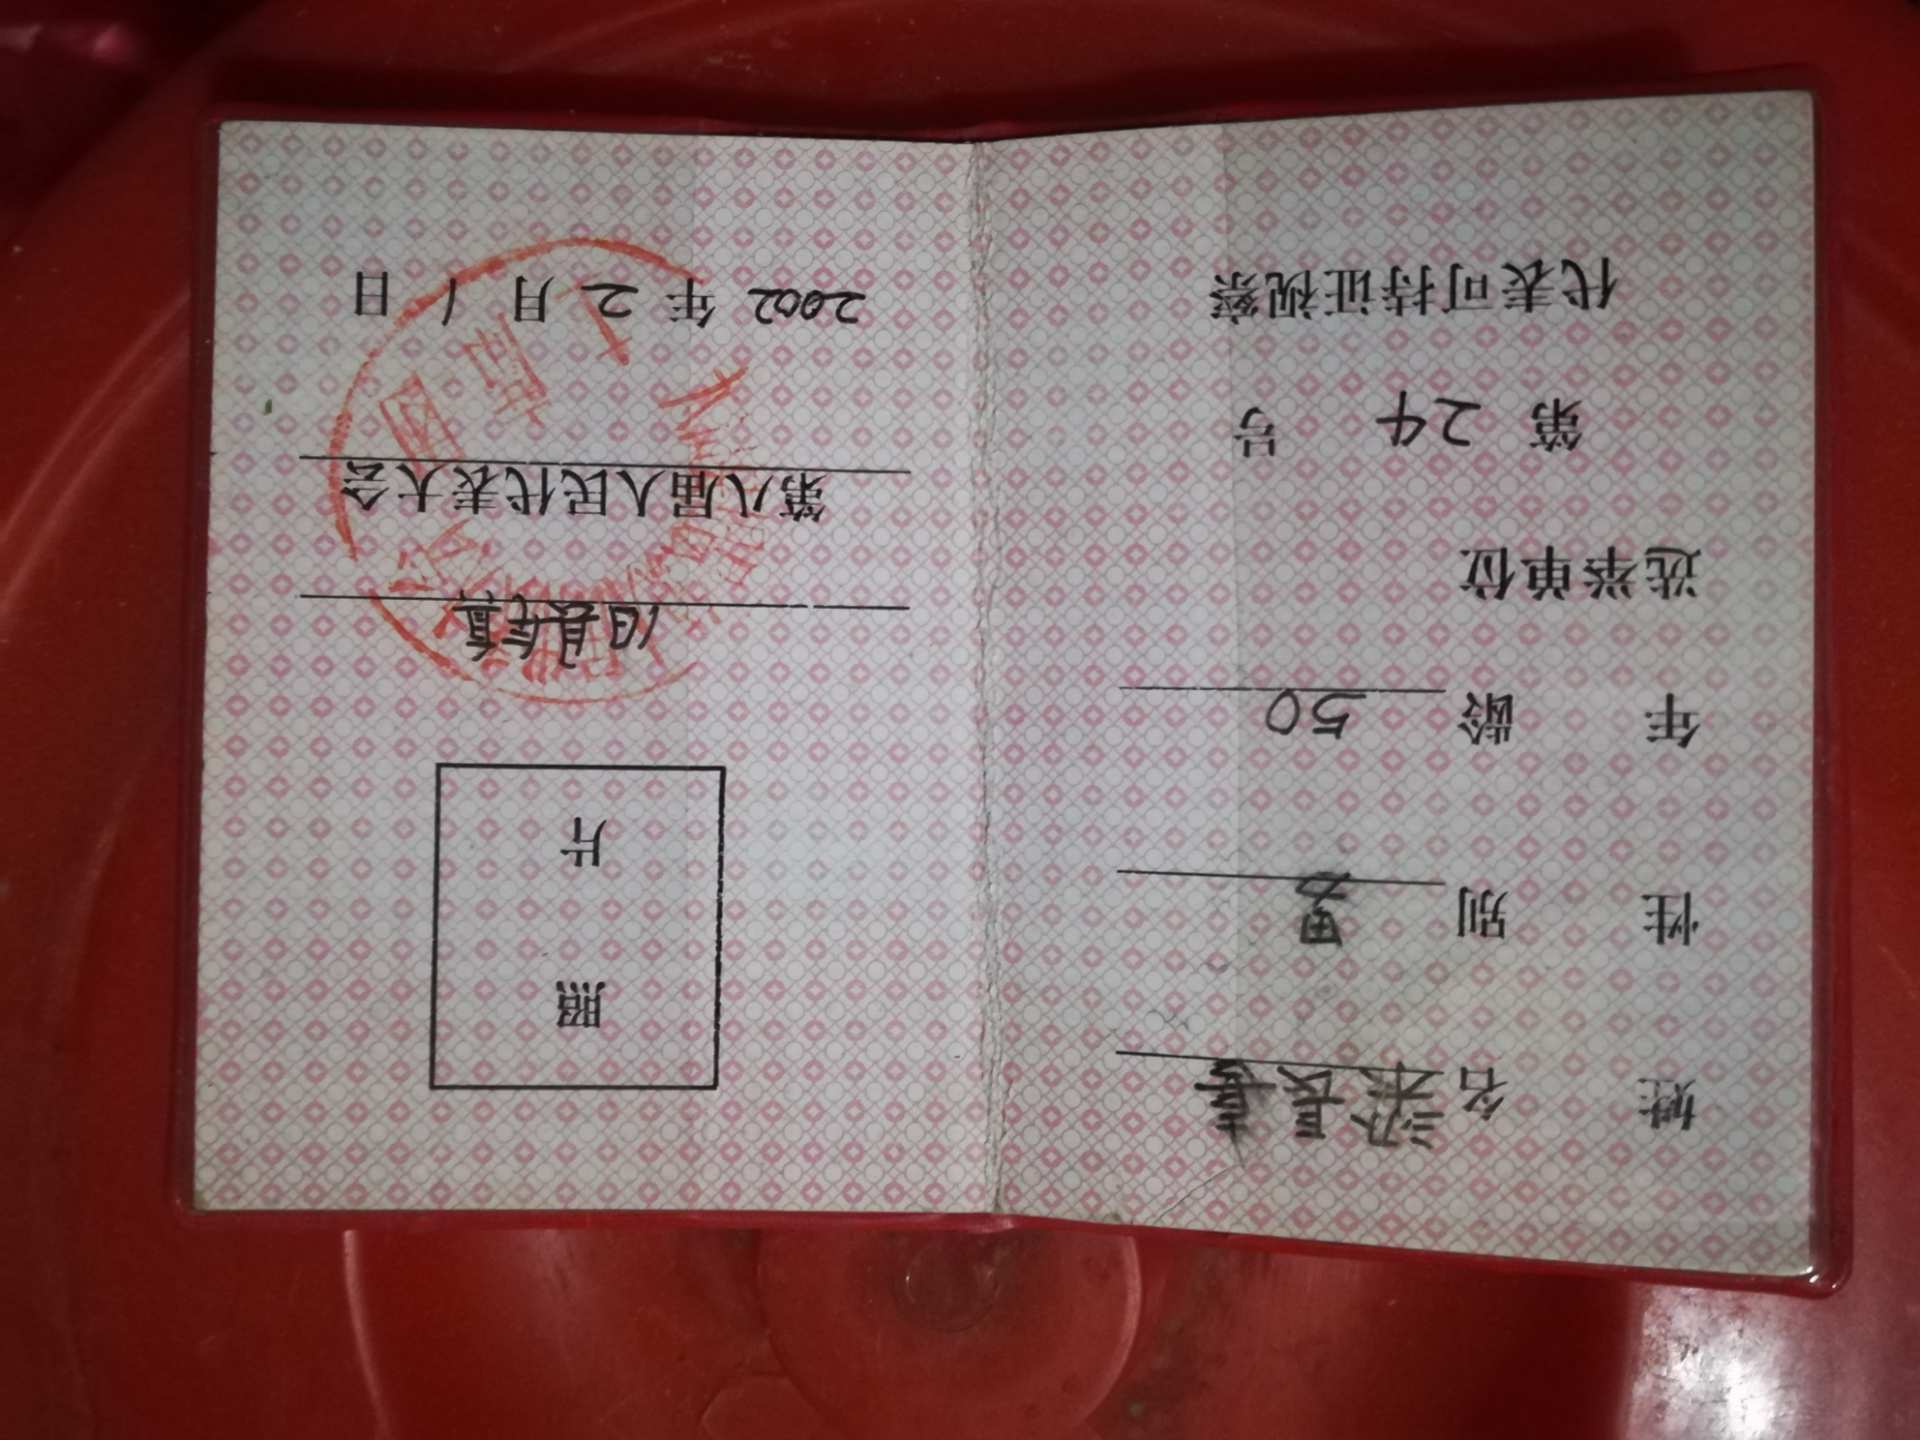 姓 名 梁長春
性 别 男
年 龄 50
选举单位
第 24 号
代表可持证视察
照
片
第八届人民代表大会
2002 年 2 月 1 日